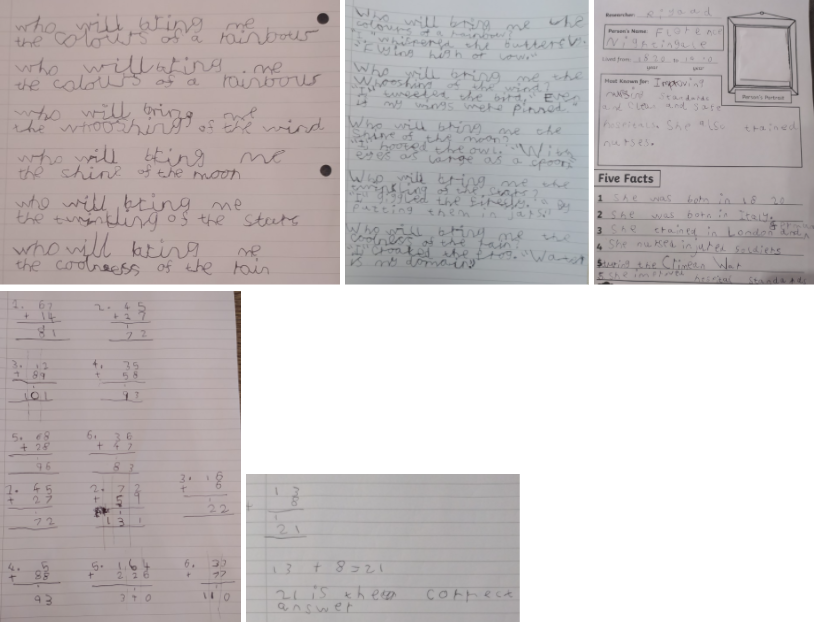 who will bring me
the colours of a rainbow
who will bring me
the colours of a rainbow
who will bring me
the whooshing of the wind
who will bring me
the shine of the moon
who will bring me
the twinkling of the stars
who will bring me
the coolness of the rain
Who will bring me the
colours of a rainbow?
whispered the butterfly.
wing high or low."
Who will bring me the
whooshing of the wind?
tweeted the bird," Even
if my wings were pinned
Who will bring me the
shine of the moon?
hooted the owl. "With
eyes as large as a spoon"
Who will bring me the
twinkling of the stars?
"I" giggled the firefly. "By
putting them in jars"
Who will bring me the
coolness of the rain?
"I" croaked the frog. "Water
is my domain"
Researcher:
Person's Name: Florence
Nightingale
Lived from 1820 to 1910
year year
Person's Portrait
Most Known for: Improving
standards
and clean and safe
hospitals. She also trained
nurses.
Five Facts
1 She was born in 1820
2 She was born in Italy.
3 She in London
4 She nursed injured soldiers
during the Crimean War
5 She improved hospital standards
1. 67 2. 45
+ 14 + 27
81 72
3. 12 4. 35
+ 89 + 58
101 93
5. 68 6. 36
+ 28 + 47
96 83
1. 45 2. 72 3. 16
+ 27 + 59 + 6
72 131 22
4. 5 5. 164 6. 33
+ 88 + 226 + 77
93 110
13
+ 8
21
13 + 8 = 21
21 is the correct
answer